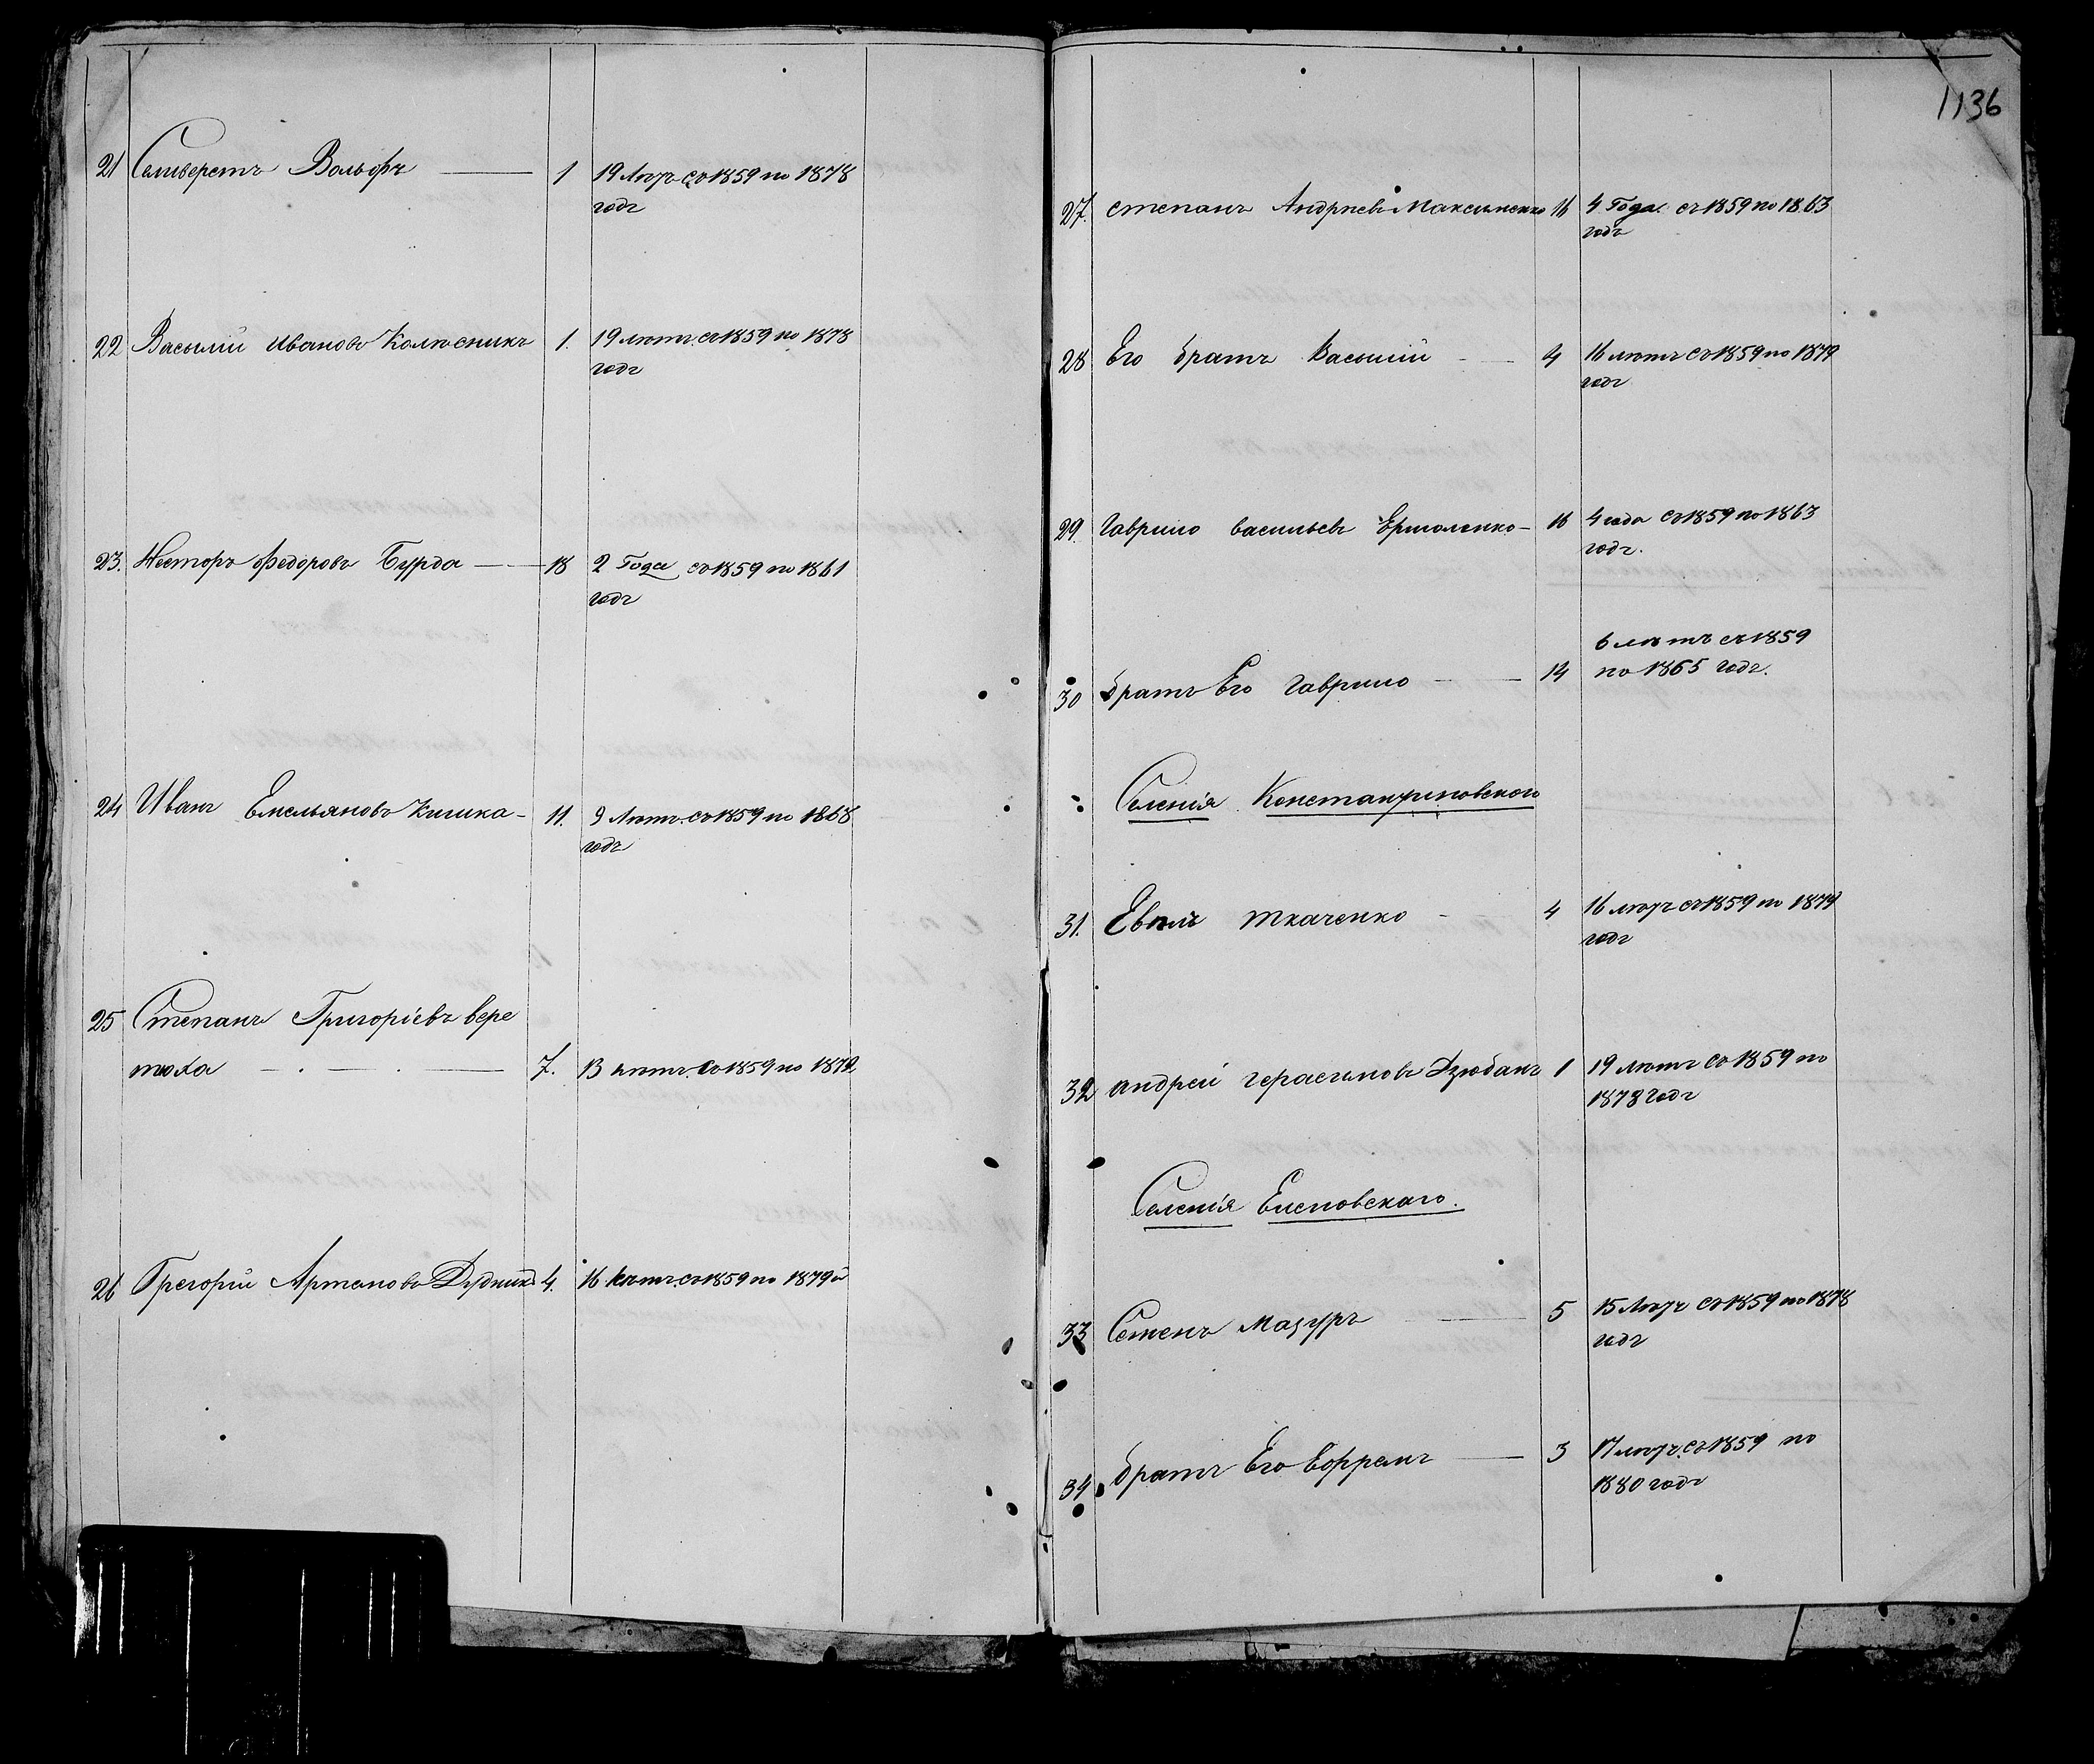 21 Селиверстъ Вольфъ 1 19 Лѣтъ съ 1859 по 1878
годъ
22 Василий Ивановъ Колѣсникъ 1. 19 лѣтъ съ 1859 по 1878
годъ
23. Несторъ Федоровъ Бурда 18 2 Года съ 1859 по 1861
годъ
24 Иванъ Емельяновъ Кишка 11. 9 Лѣтъ съ 1859 по 1868
годъ
25 Степанъ Григоріевъ Вере
7. 13 лѣтъ съ 1859 по 1872
26 Григорий Дудникъ 4. 16 лѣтъ съ 1859 по 1879
1136
27. Степанъ Андриевъ Максименко 16 4 Года съ 1859 по 1863
годъ
28 Его братъ Василий 4 16 лѣтъ съ 1859 по 1879
годъ
29. Гаврило Васильевъ Ермоленко 16 4 года съ 1859 по 1863
годъ.
6 лѣтъ съ 1859
30 братъ Его Гаврило 14 по 1865 годъ.
Селенія Константиновского
31. Ткаченко 4 16 лѣтъ съ 1859 по 1879
годъ
32 Андрей Герасимовъ Дзюбанъ 1 19 лѣтъ съ 1859 по
1878 годъ
Селенія Еленовскаго.
33 Семенъ Мазуръ 5 15 Лѣтъ съ 1859 по 1878
годъ
34 братъ Его Ефремъ 3 17 лѣтъ съ 1859 по
1880 годъ